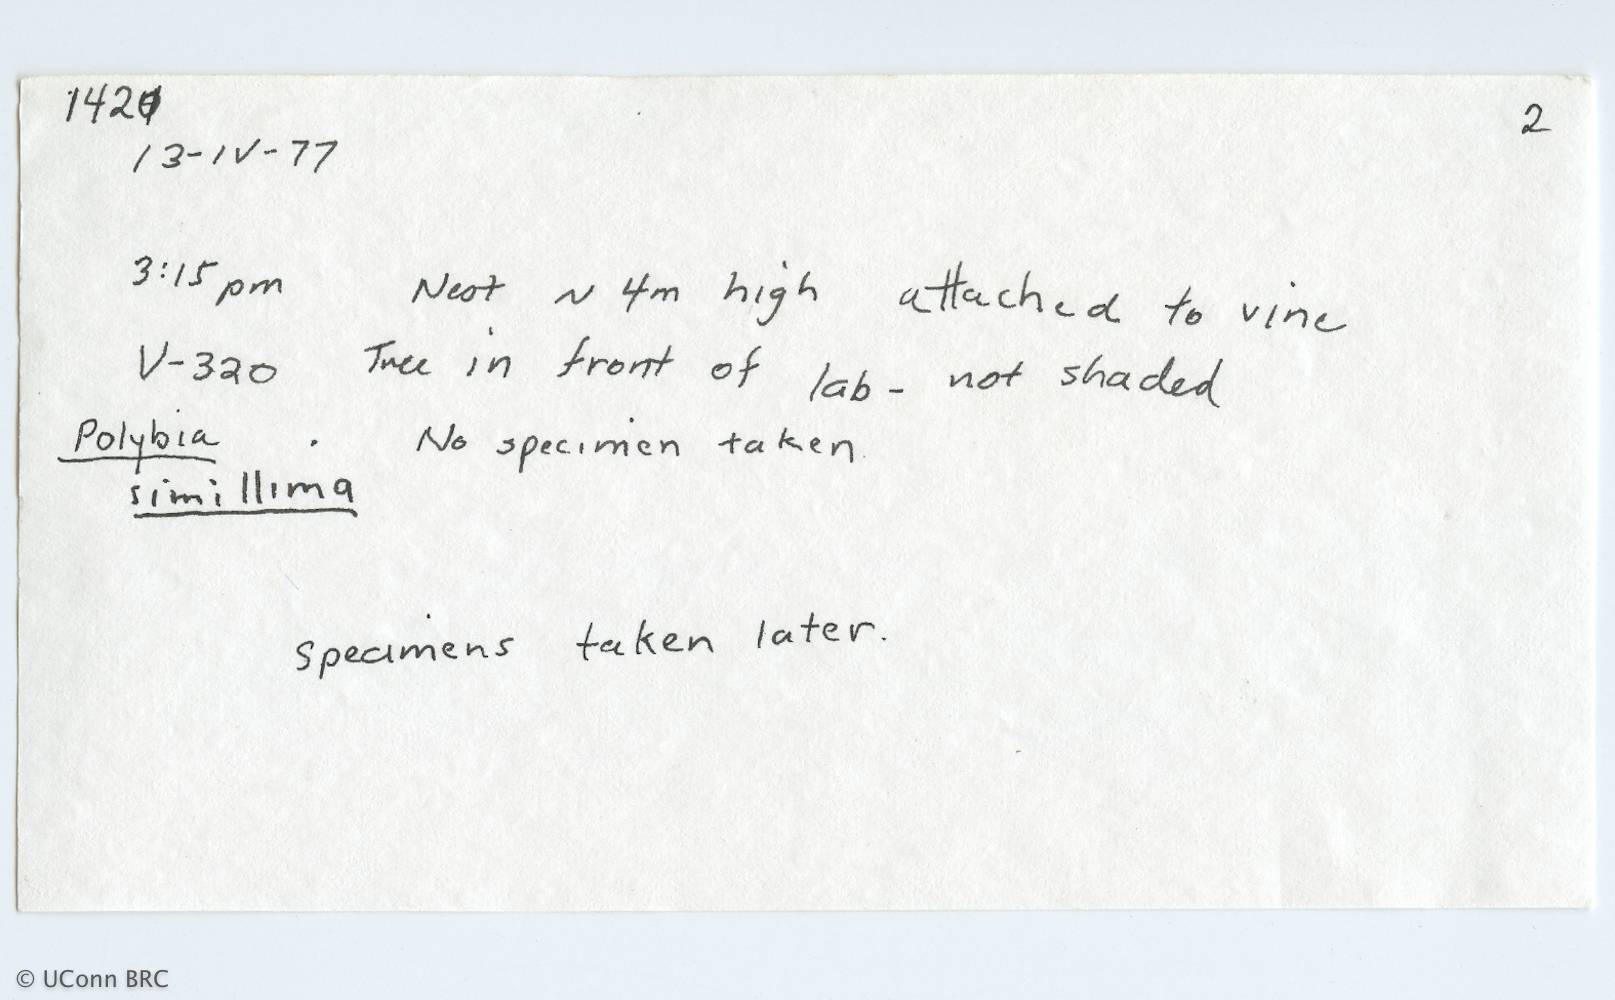 1421 2
13-IV-77
3:15 pm Nest ~ 4m high attached to vine
V-320 Tree in front of lab - not shaded
Polybia . No specimen taken.
simillima
specimens taken later.
© UConn BRC